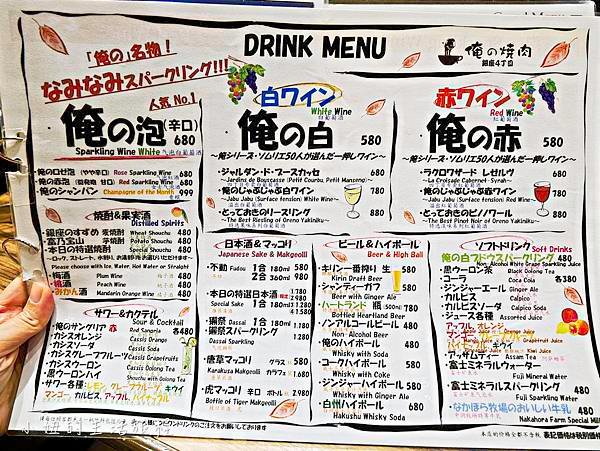 DRINK MENU
俺の焼肉
銀座4丁目
「俺の」名物！
なみなみスパークリング!!!
人気 No.1
俺の泡(辛口)
680
Sparkling Wine White 气泡白葡萄酒
・俺のロゼ泡 (やや辛口) Rose Sparkling Wine 680
Red Sparkling Wine 680
・俺のシャンパン Champagne of the Month 999
白ワイン
White Wine
白葡萄酒
俺の白 580
〜俺シリーズ・ソムリエ50人が選んだ一押しワイン〜
・ジャルダン・ド・ブースカッセ 680
〜Jardins de Bouscasse (Petit Courbu, Petit Manseng)〜
・俺のじゃぶじゃぶ白ワイン 780
〜Jabu Jabu (Surface tension) White Wine〜
・とっておきのリースリング 880
〜The Best Riesling of Oreno Yakiniku〜
赤ワイン
Red Wine
红葡萄酒
俺の赤 580
〜俺シリーズ・ソムリエ50人が選んだ一押しワイン〜
・ラクロワザード レゼルヴ 680
〜La Croisade Cabernet-Syrah〜
・俺のじゃぶじゃぶ赤ワイン 780
〜Jabu Jabu (Surface tension) Red Wine〜
・とっておきのピノノワール 880
〜The Best Pinot Noir of Oreno Yakiniku〜
焼酎&果実酒
Distilled Spirits
・銀座のすずめ 麦焼酎 Wheat Shouchu 480
・富乃宝山 芋焼酎 Potato Shouchu 480
・本日の特選焼酎 Special Shouchu 480
〜ロック、ストレート、水割り、お湯割りからお選びいただけます〜
Please choose with Ice, Water, Hot Water or Straight
・梅酒 Plum Wine 480
・桃酒 Peach Wine 480
・みかん酒 Mandarin Orange Wine 480
サワー&カクテル
Sour & Cocktail
・俺のサングリア 赤 Red Sangria 480
・カシスオレンジ Cassis Orange 480
・カシスソーダ Cassis Soda 480
・カシスグレープフルーツ Cassis Grapefruits 480
・カシスウーロン Cassis Oolong Tea 480
・黒ウーロンハイ Shouchu with Oolong Tea 480
・サワー各種 レモン、グレープフルーツ、キウイ
マンゴー、カルピス、アップル、パイナップル 480
日本酒&マッコリ
Japanese Sake & Makgeolli
・不動 Fudou 1合 180ml 580
2合 360ml 980
・本日の特選日本酒
Special Sake 1合 180ml
・獺祭 Dassai 1合 180ml
・獺祭スパークリング
Dassai Sparkling
・唐草マッコリ グラス 580
Karakusa Makgeolli Carafe
・虎マッコリ 辛口 ボトル
Bottle of Tiger Makgeolli
ビール&ハイボール
Beer & High Ball
・キリン一番搾り 生 580
Kirin Draft Beer
・シャンディーガフ 580
Beer with Ginger Ale
・ハートランド 瓶 (500ml) 780
Bottled Heartland Beer
・ノンアルコールビール 480
Non-Alcohol Beer
・俺のハイボール 480
Whisky with Soda
・コークハイボール 480
Whisky with Coke
・ジンジャーハイボール 480
Whisky with Ginger Ale
・白州ハイボール 680
Hakushu Whisky Soda
ソフトドリンク
Soft Drinks
・俺の白ブドウスパークリング 480
Non Alcohol White Grape Sparkling Juice
・黒ウーロン茶
Black Oolong Tea
・コーラ
Coca Cola
各380
・ジンジャーエール
Ginger Ale
・カルピス
Calpico
・カルピスソーダ
Calpico Soda
・ジュース各種
Assorted Juice
アップル、オレンジ
グレープフルーツ
マンゴー
パイナップル、キウイ
Kiwi Juice
・アッサムティー
Assam Tea
・富士ミネラルウォーター
Fuji Mineral Water
・富士ミネラルスパークリング 480
Fuji Sparkling Water
・なかほら牧場のおいしい牛乳
Nakahora Farm Special Milk
表記価格は税別価格